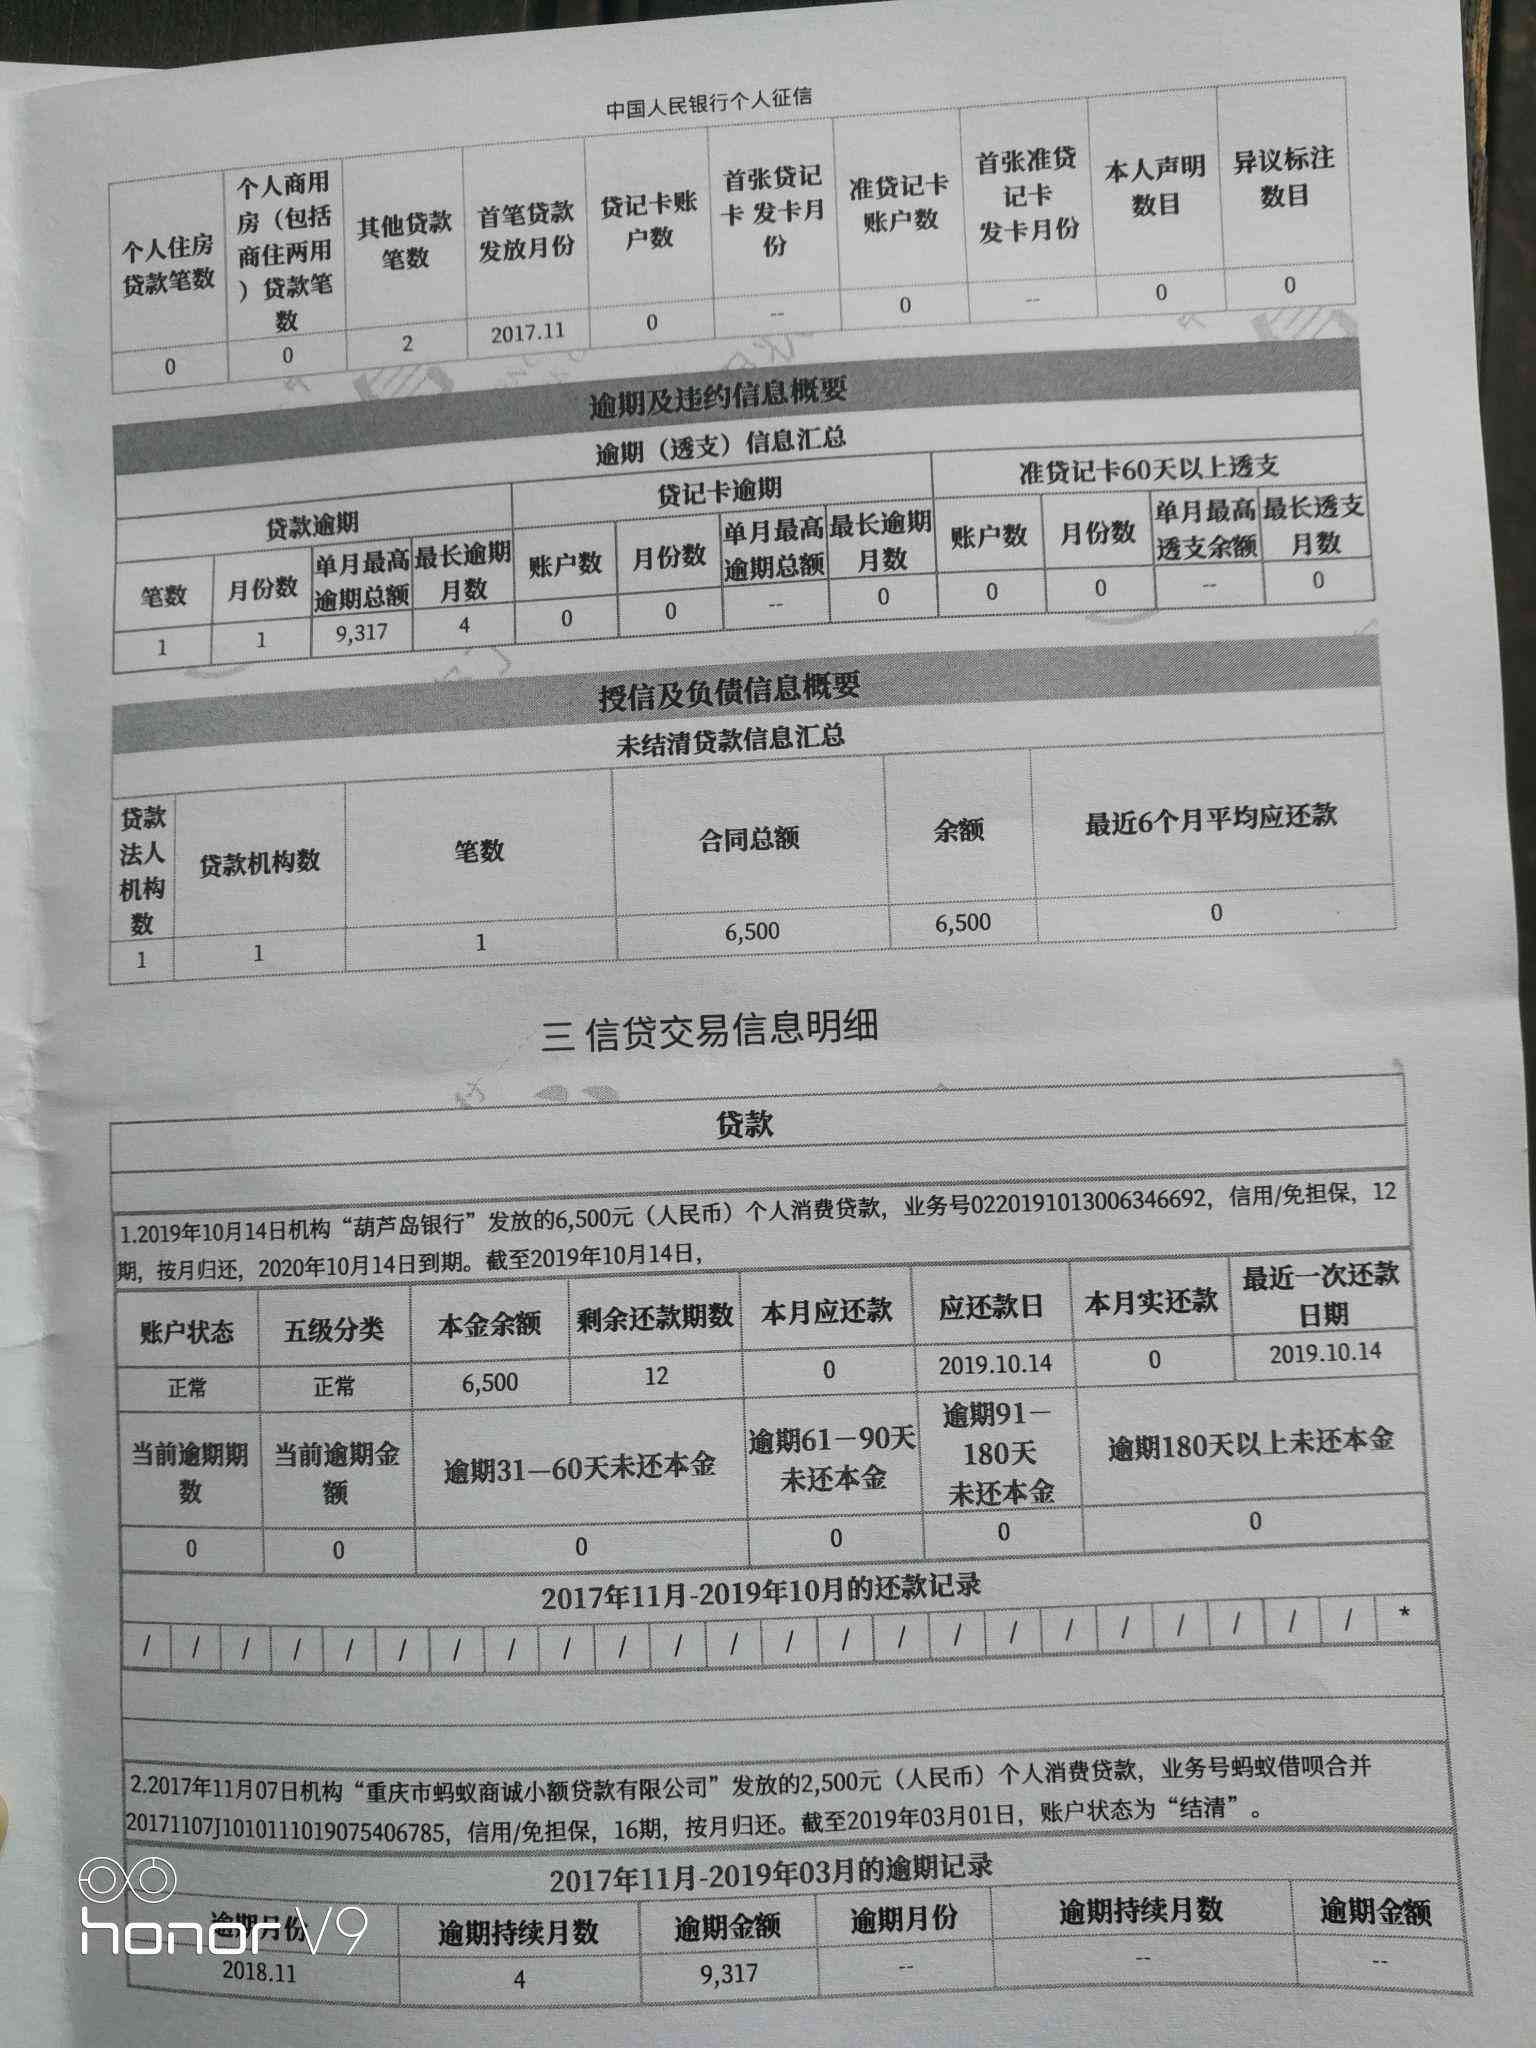 中国人民银行个人征信
个人住房贷款笔数 个人商用房（包括商住两用）贷款笔数 其他贷款笔数 首笔贷款发放月份 贷记卡账户数 首张贷记卡 发卡月份 准贷记卡账户数 首张准贷记卡 发卡月份 本人声明数目 异议标注数目
0 0 2 2017.11 0 -- 0 -- 0 0
逾期及违约信息概要
逾期（透支）信息汇总
贷款逾期 贷记卡逾期 准贷记卡60天以上透支
笔数 月份数 单月最高逾期总额 最长逾期月数 账户数 月份数 单月最高逾期总额 最长逾期月数 账户数 月份数 单月最高透支余额 最长透支月数
1 1 9,317 4 0 0 -- 0 0 0 -- 0
授信及负债信息概要
未结清贷款信息汇总
贷款法人机构数 贷款机构数 笔数 合同总额 余额 最近6个月平均应还款
1 1 1 6,500 6,500 0
三 信贷交易信息明细
贷款
1.2019年10月14日机构“葫芦岛银行”发放的6,500元（人民币）个人消费贷款，业务号0220191013006346692，信用/免担保，12
期，按月归还，2020年10月14日到期。截至2019年10月14日，
账户状态 五级分类 本金余额 剩余还款期数 本月应还款 应还款日 本月实还款 最近一次还款日期
正常 正常 6,500 12 0 2019.10.14 0 2019.10.14
当前逾期期数 当前逾期金额 逾期31－60天未还本金 逾期61－90天未还本金 逾期91－180天未还本金 逾期180天以上未还本金
0 0 0 0 0 0
2017年11月-2019年10月的还款记录
/ / / / / / / / / / / / / / / / / / / / / / / *
2.2017年11月07日机构“重庆市蚂蚁商诚小额贷款有限公司”发放的2,500元（人民币）个人消费贷款，业务号蚂蚁借呗合并
20171107J1010111019075406785，信用/免担保，16期，按月归还。截至2019年03月01日，账户状态为“结清”。
2017年11月-2019年03月的逾期记录
逾期月份 逾期持续月数 逾期金额 逾期月份 逾期持续月数 逾期金额
2018.11 4 9,317 -- -- --
honor V9